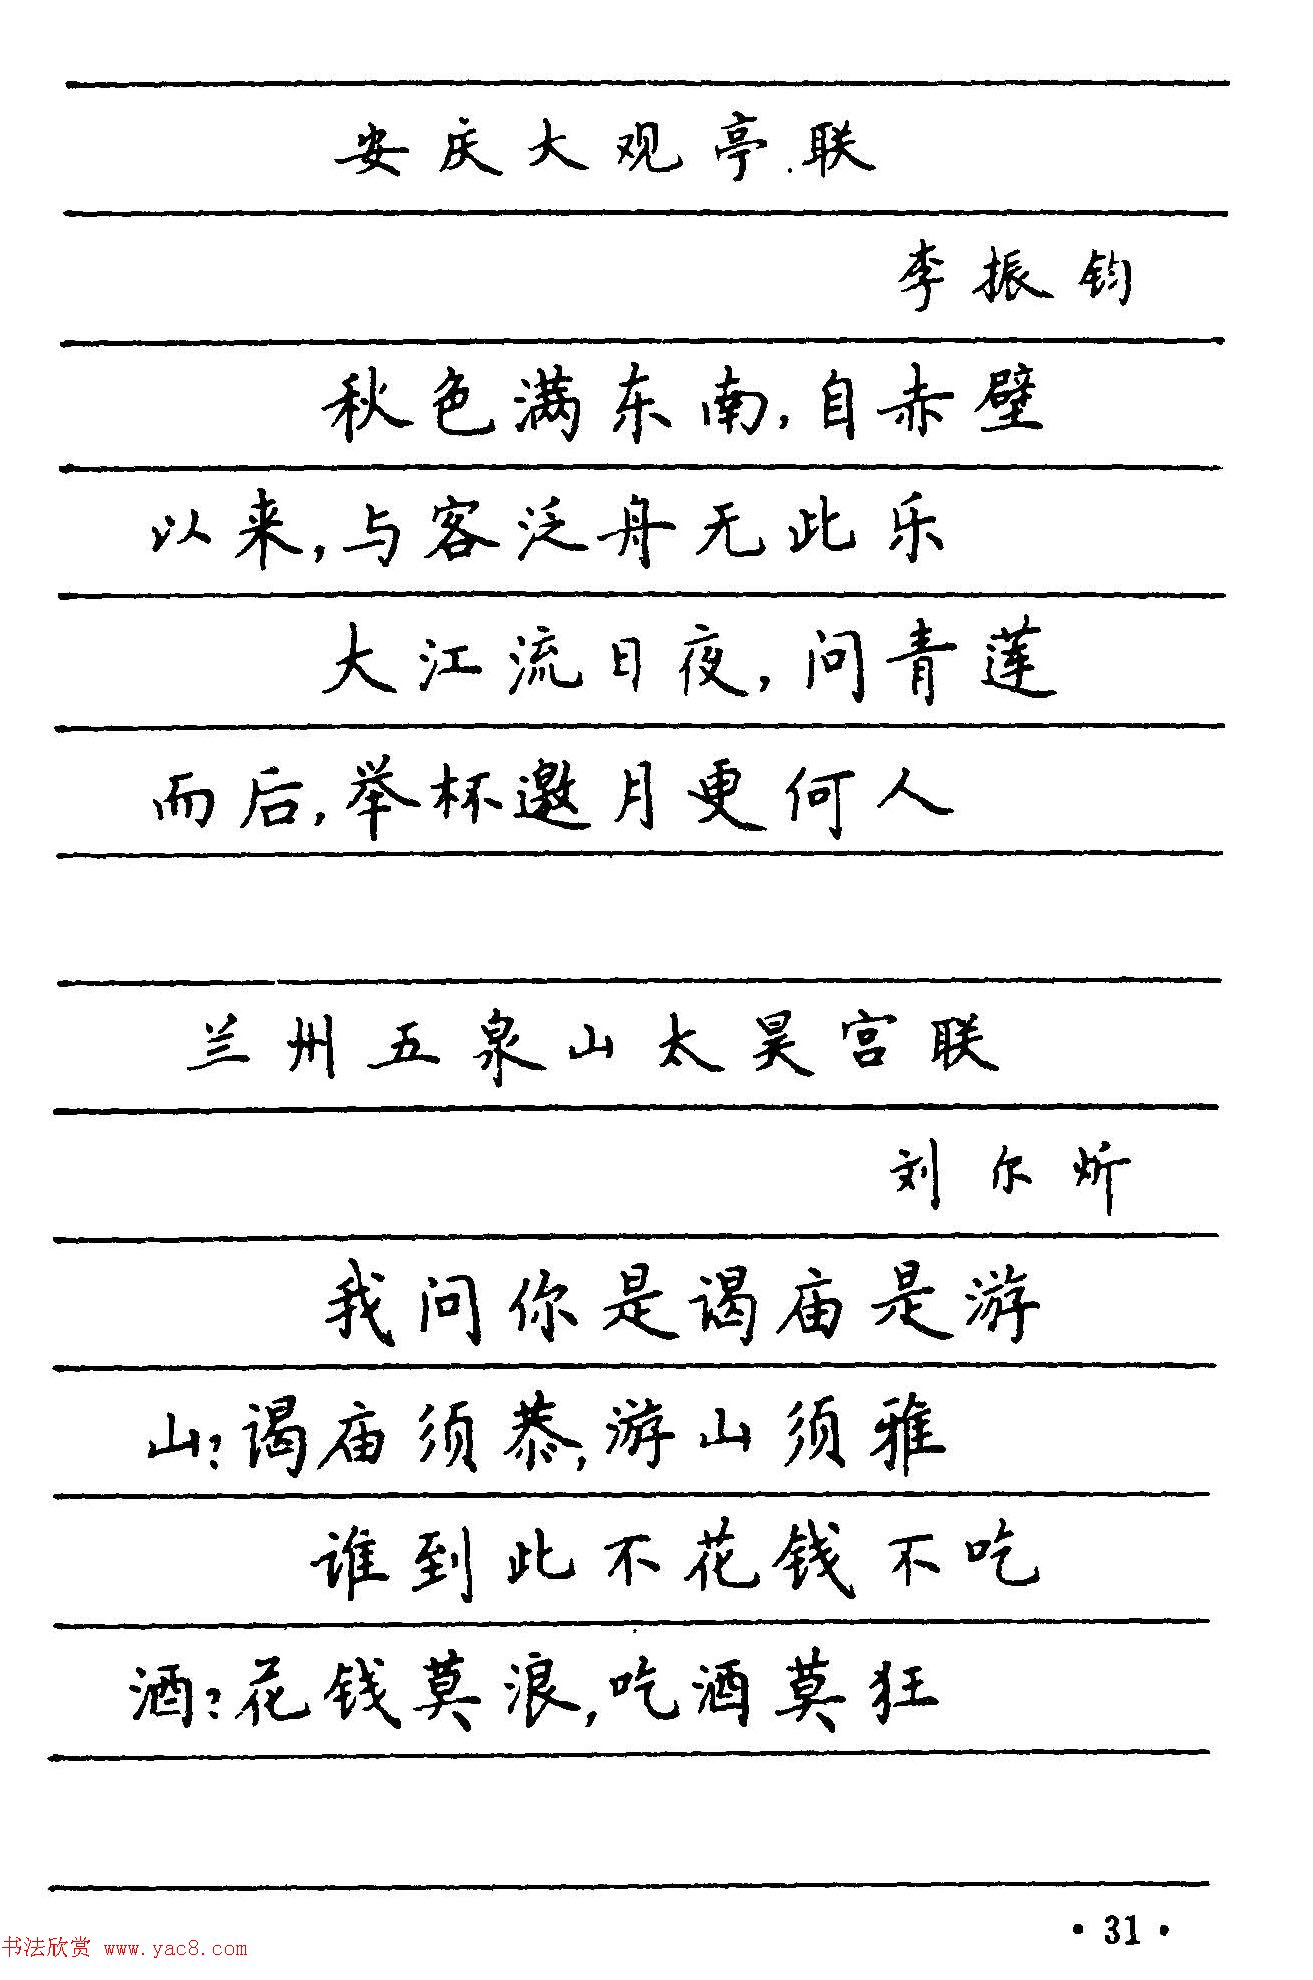 安庆大观亭联
李振钧
秋色满东南,自赤壁
以来,与客泛舟无此乐
大江流日夜,问青莲
而后,举杯邀月更何人
兰州五泉山太昊宫联
刘尔炘
我问你是谒庙是游
山?谒庙须恭,游山须雅
谁到此不花钱不吃
酒?花钱莫浪,吃酒莫狂
·31·
书法欣赏 www.yac8.com